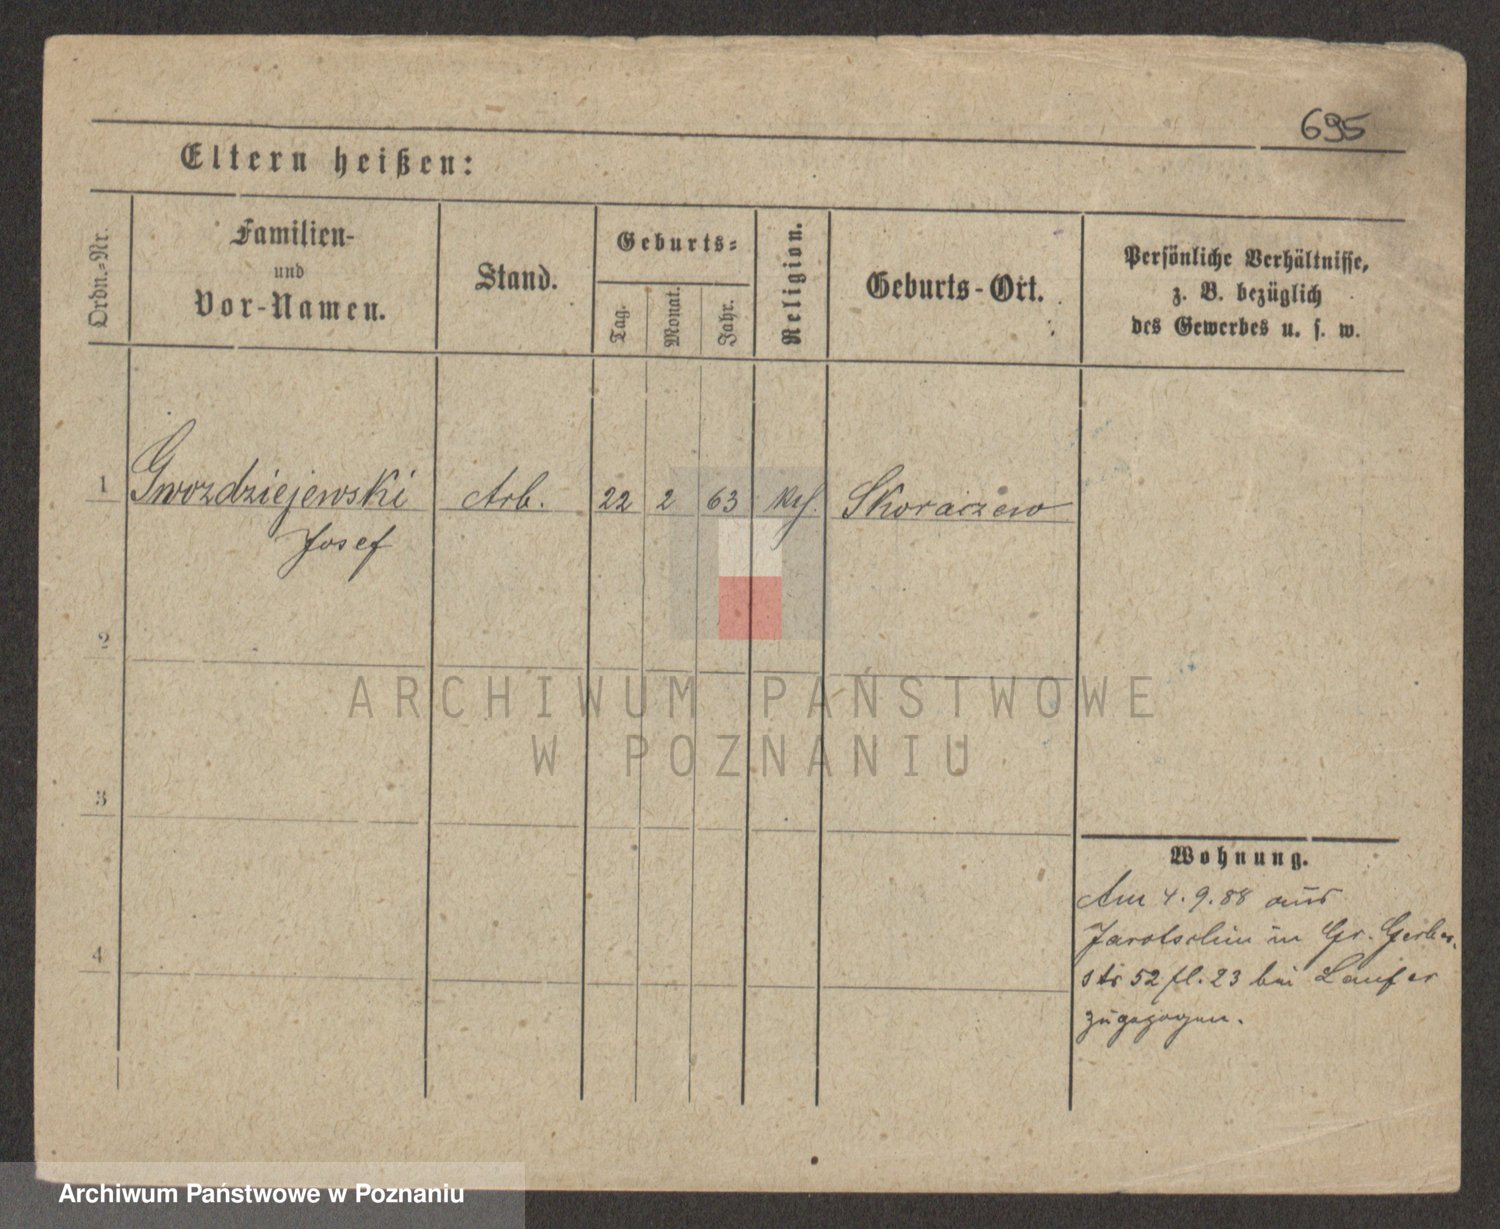 695
Eltern heißen:
Ordn.-Nr.
Familien-
und
Vor-Namen.
Stand.
Geburts-
Tag.
Monat.
Jahr.
Religion.
Geburts-Ort.
Persönliche Verhältnisse,
z. B. bezüglich
des Gewerbes u. s. w.
1 Gwozdziejewski Arb. 22 2 63 kth. Skoraczewo
Josef
2
3
4
Wohnung.
Am 4.9.88 aus
Jarotschin in Gr. Gerber-
str 52 fl. 23 bei Laufer
zugezogen.
ARCHIWUM PAŃSTWOWE
W POZNANIU
Archiwum Państwowe w Poznaniu